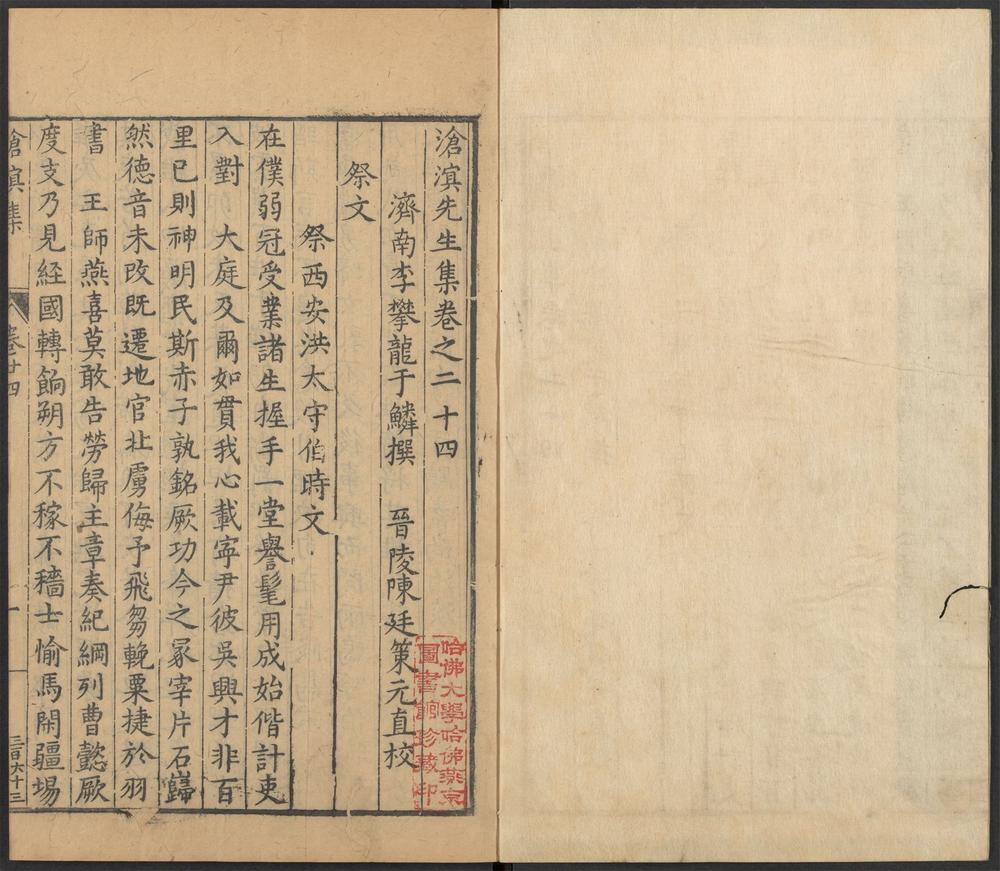 滄溟先生集卷之二十四
濟南李攀龍于鱗撰 晉陵陳廷策元直校
祭文
祭西安洪太守伯時文
在僕弱冠受業諸生握手一堂譽髦用成始偕計吏
入對 大庭及爾如貫我心載寧尹彼吳興才非百
里已則神明民斯赤子孰銘厥功今之冢宰片石巋
然德音未改既遷地官北虜侮予飛芻輓粟捷於羽
書 王師燕喜莫敢告勞歸主章奏紀綱列曹懿厥
度支乃見經國轉餉朔方不稼不穡士愉馬閑疆埸
滄溟集 卷廿四 一 三百六十三
哈佛大學哈佛燕京
圖書館珍藏印